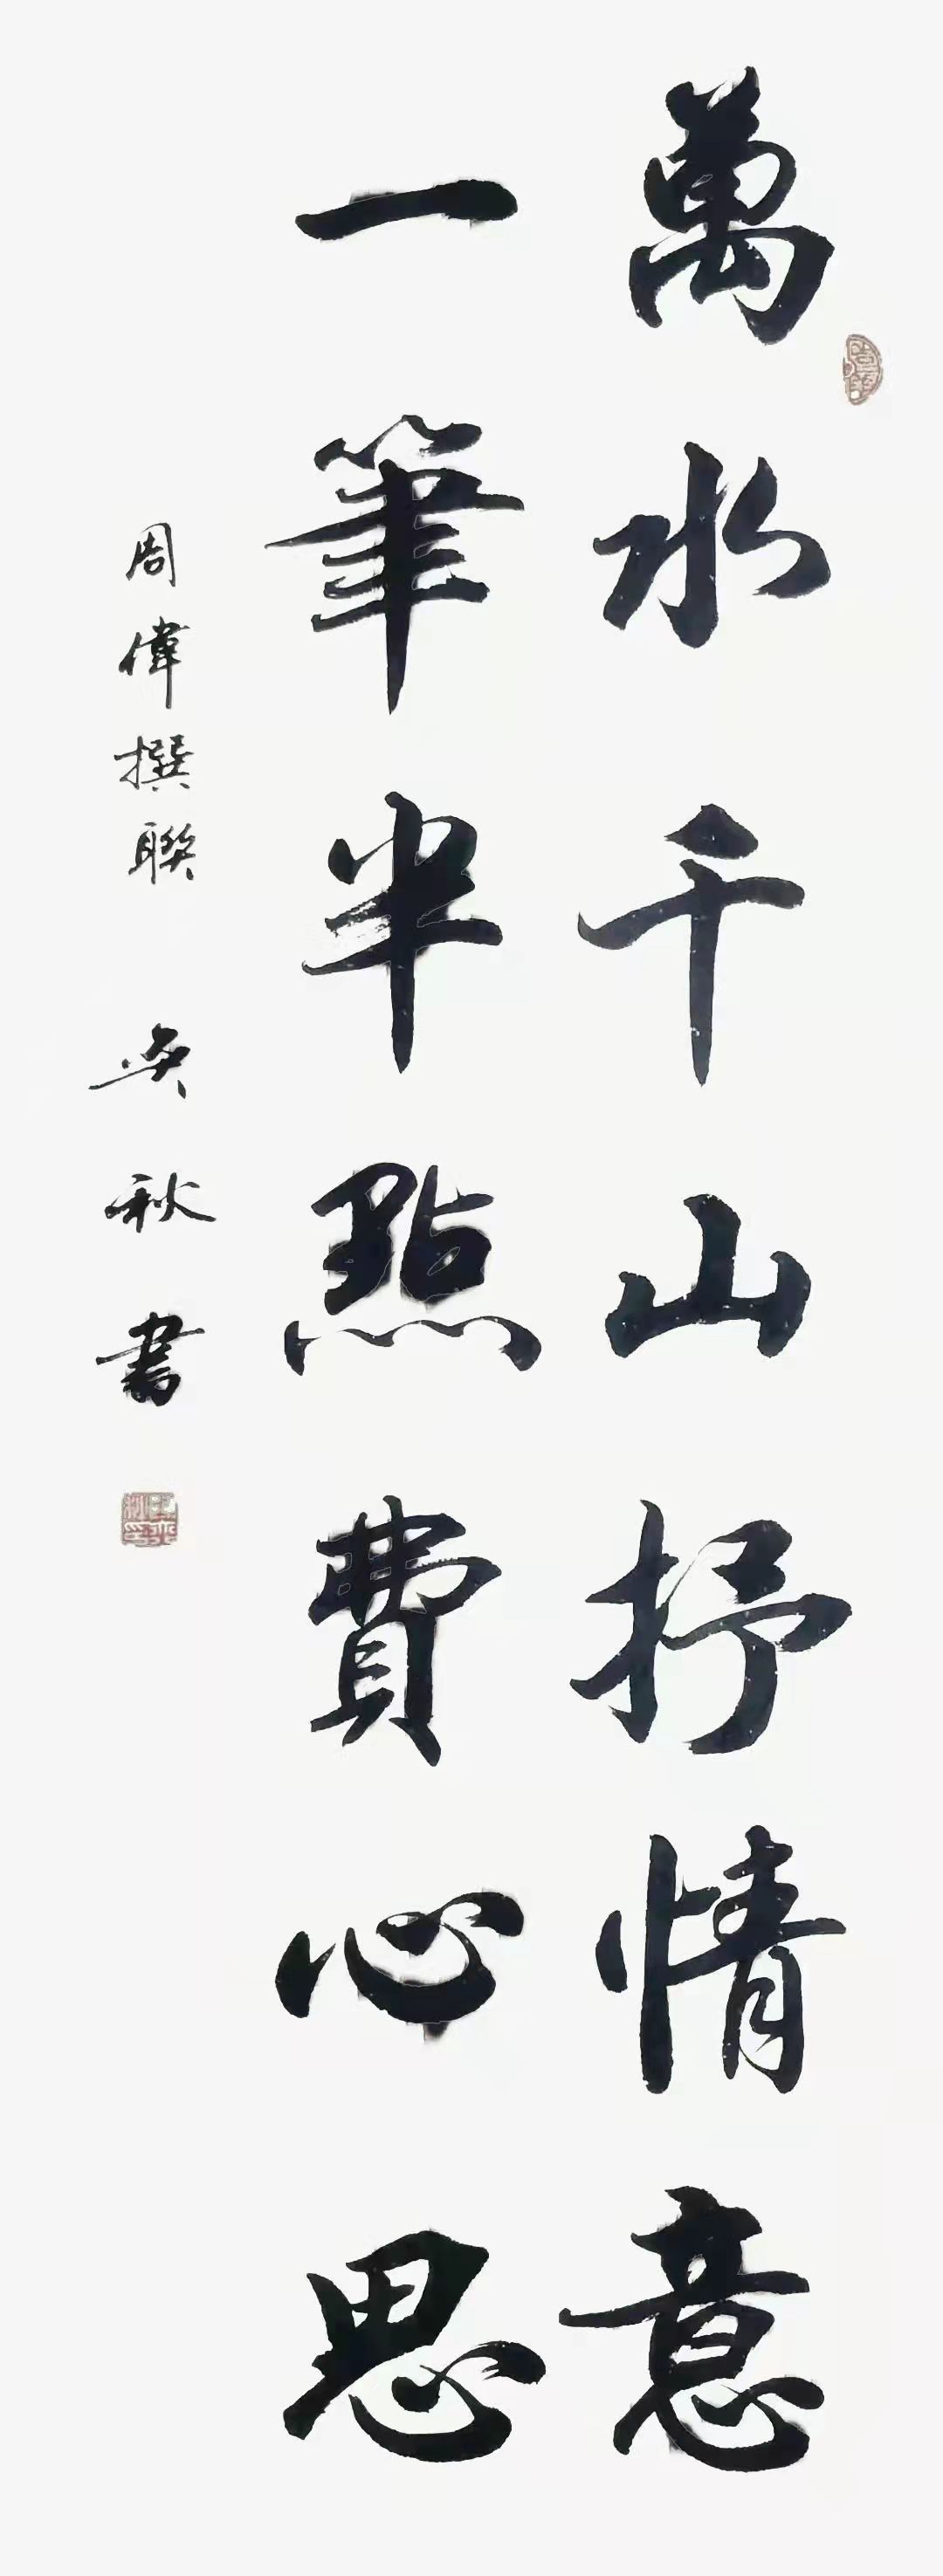 萬水千山抒情意
一筆半點費心思
周偉撰聯 吳秋書